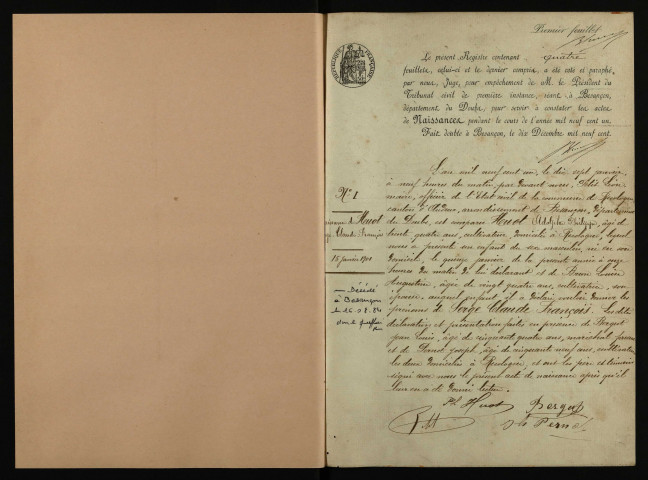 Premier feuillet
RÉPUBLIQUE FRANÇAISE
Le présent Registre contenant quatre
feuillets, celui-ci et le dernier compris, a été coté et paraphé
par nous, Juge, pour empêchement de M. le Président du
Tribunal civil de première instance, séant à Besançon,
département du Doubs, pour servir à constater les actes
de Naissances pendant le cours de l'année mil neuf cent un.
Fait double à Besançon, le dix Décembre mil neuf cent.
N° 1
Huot
Claude François
15 Janvier 1901
Décédé
à Besançon
le 16
L'an mil neuf cent un, le dix sept janvier,
à neuf heures du matin, par devant nous,
maire, officier de l'état civil de la commune de
canton d'Audeux, arrondissement de Besançon, département
du Doubs, est comparu Huot Adolphe Philippe, âgé de
trente quatre ans, cultivateur, domicilié à lequel
nous a présenté un enfant du sexe masculin, né en son
domicile, le quinze janvier de la présente année à onze
heures du matin de lui déclarant et de Louise
Augustine, âgée de vingt quatre ans, cultivatrice, son
épouse, auquel enfant il a déclaré vouloir donner les
prénoms de Serge Claude François. Les dites
déclaration et présentation faites en présence de Pergot
Louis, âgé de cinquante quatre ans, maréchal
et de Pernet Joseph, âgé de cinquante neuf ans, cultivateur
les deux domiciliés à et ont les père et témoins
signé avec nous le présent acte de naissance après qu'il
leur en a été donné lecture.
Ph. Huot Pergot
Pernet